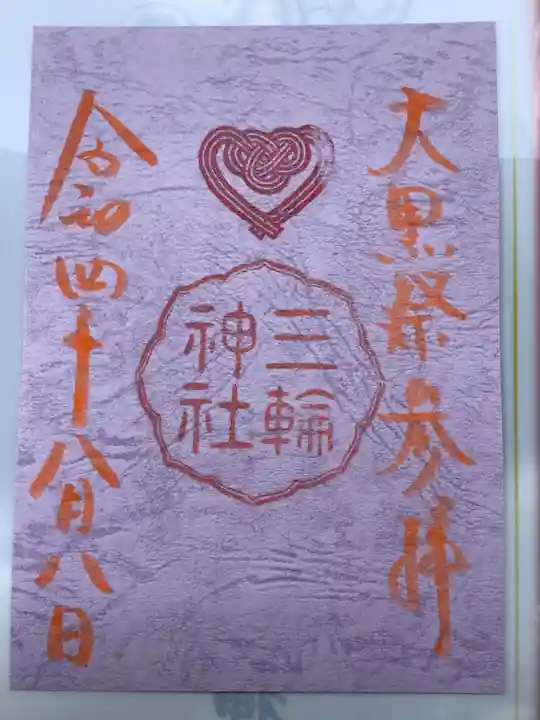 大黒祭参拝
三輪
神社
令和四年八月八日